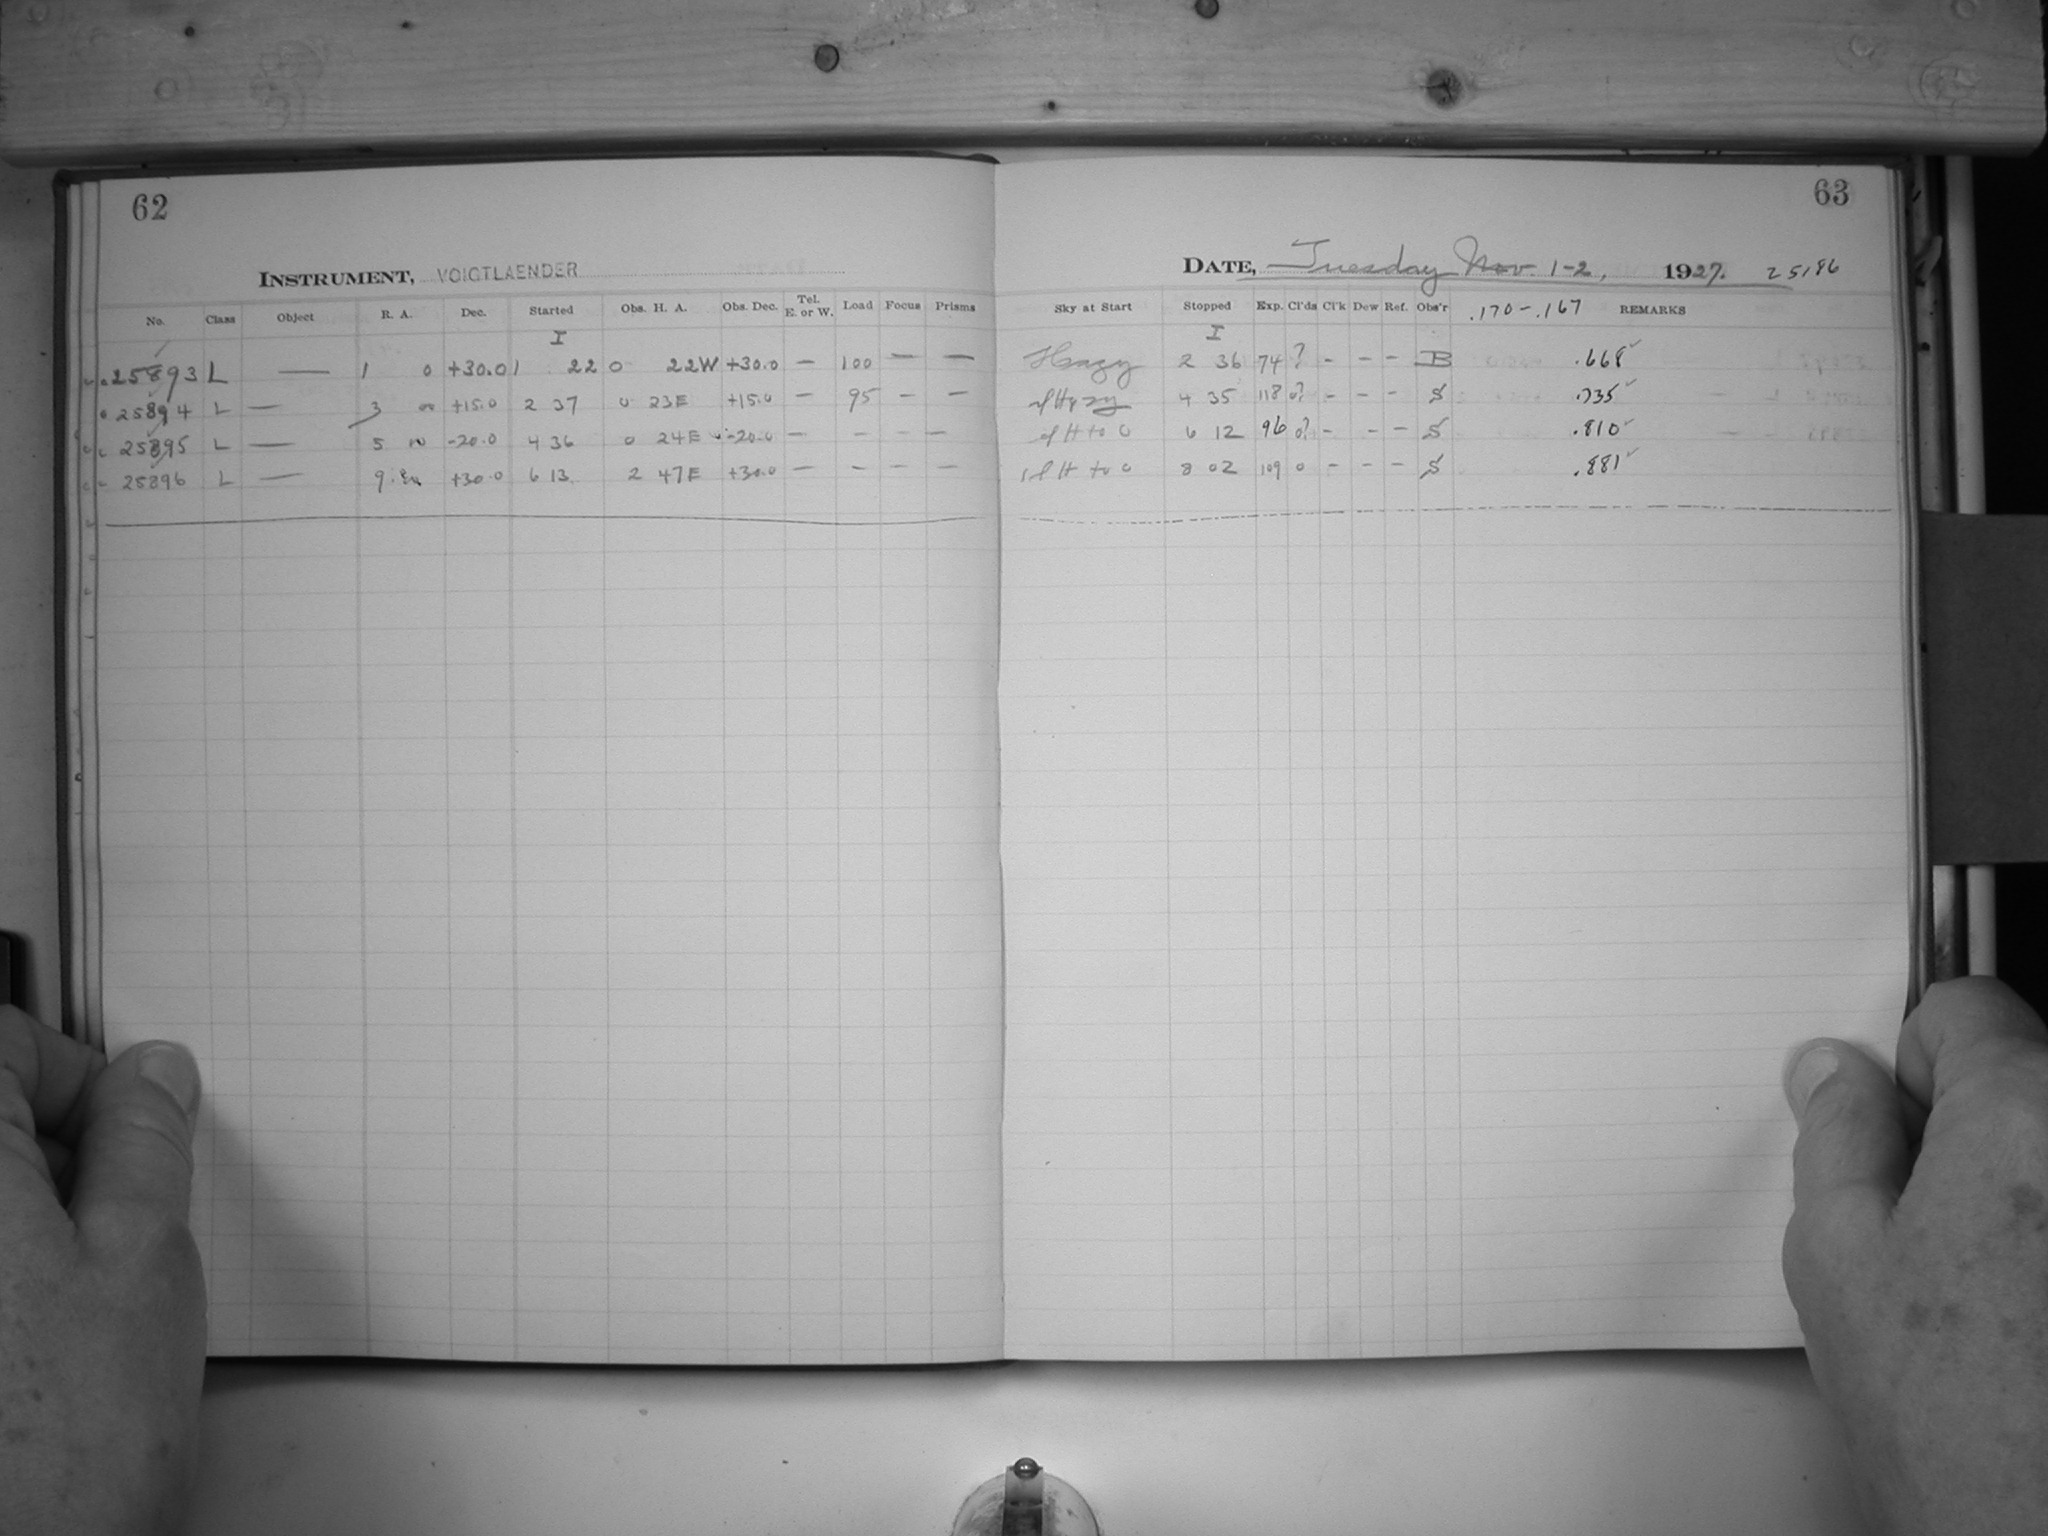 62
63
INSTRUMENT, VOIGTLAENDER
DATE, Tuesday Nov. 1-2, 1927. 25186
No. Class Object R. A. Dec. Started Obs. H. A. Obs. Dec. Tel. E. or W. Load Focus Prisms Sky at Start Stopped Exp. Cl'ds Cl'k Dew Ref. Obs'r .170-.167 REMARKS
I I
25893 L — 1 0 +30.0 1 22 0 22W +30.0 — 100 — — Hazy 2 36 74 ? - - - B .668
25894 L — 3 +15.0 2 37 0 23E +15.0 — 95 - - 4 35 118 0? - - - S .735
25895 L — 5 -20.0 4 36 0 24E -20.0 — - - — H to 0 6 12 96 0? - - - S .810
25896 L — 9 +30.0 6 13 2 47E +30.0 — - - - H to 0 8 02 109 0 - - - S .881